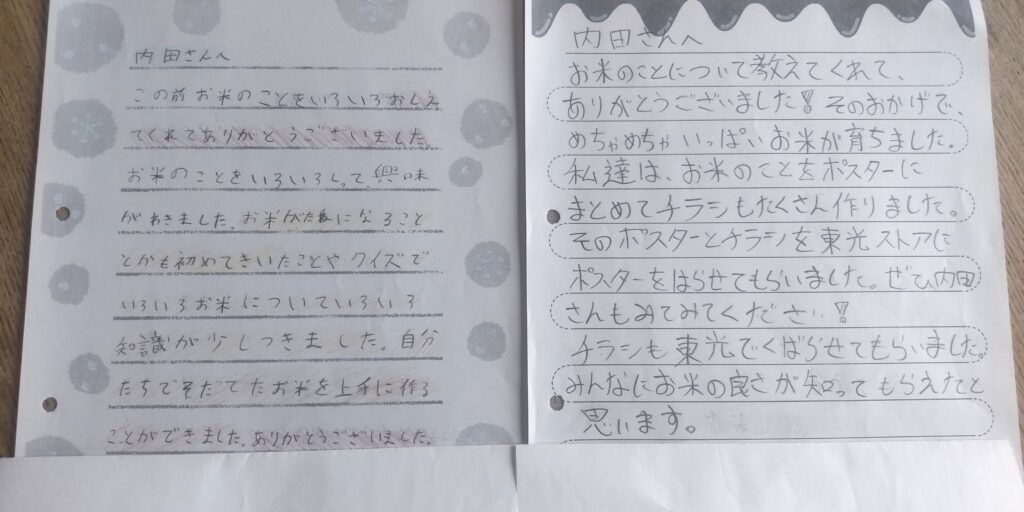 内田さんへ
この前お米のことをいろいろおしえ
てくれてありがとうございました
お米のことをいろいろしって興味
がわきました。お米が に なること
とかも初めてきいたことや クイズで
いろいろお米についていろいろ
知識が少しつきました。自分
たちでそだてたお米を上手に作る
ことができました。ありがとうございました。
内田さんへ
お米のことについて教えてくれて、
ありがとうございました!そのおかげで、
めちゃめちゃいっぱいお米が育ちました。
私達は、お米のことをポスターに
まとめてチラシもたくさん作りました。
そのポスターとチラシを東光ストアに
ポスターをはらせてもらいました。ぜひ内田
さんもみてみてください!
チラシも東光でくばらせてもらいました。
みんなにお米の良さが知ってもらえたと
思います。